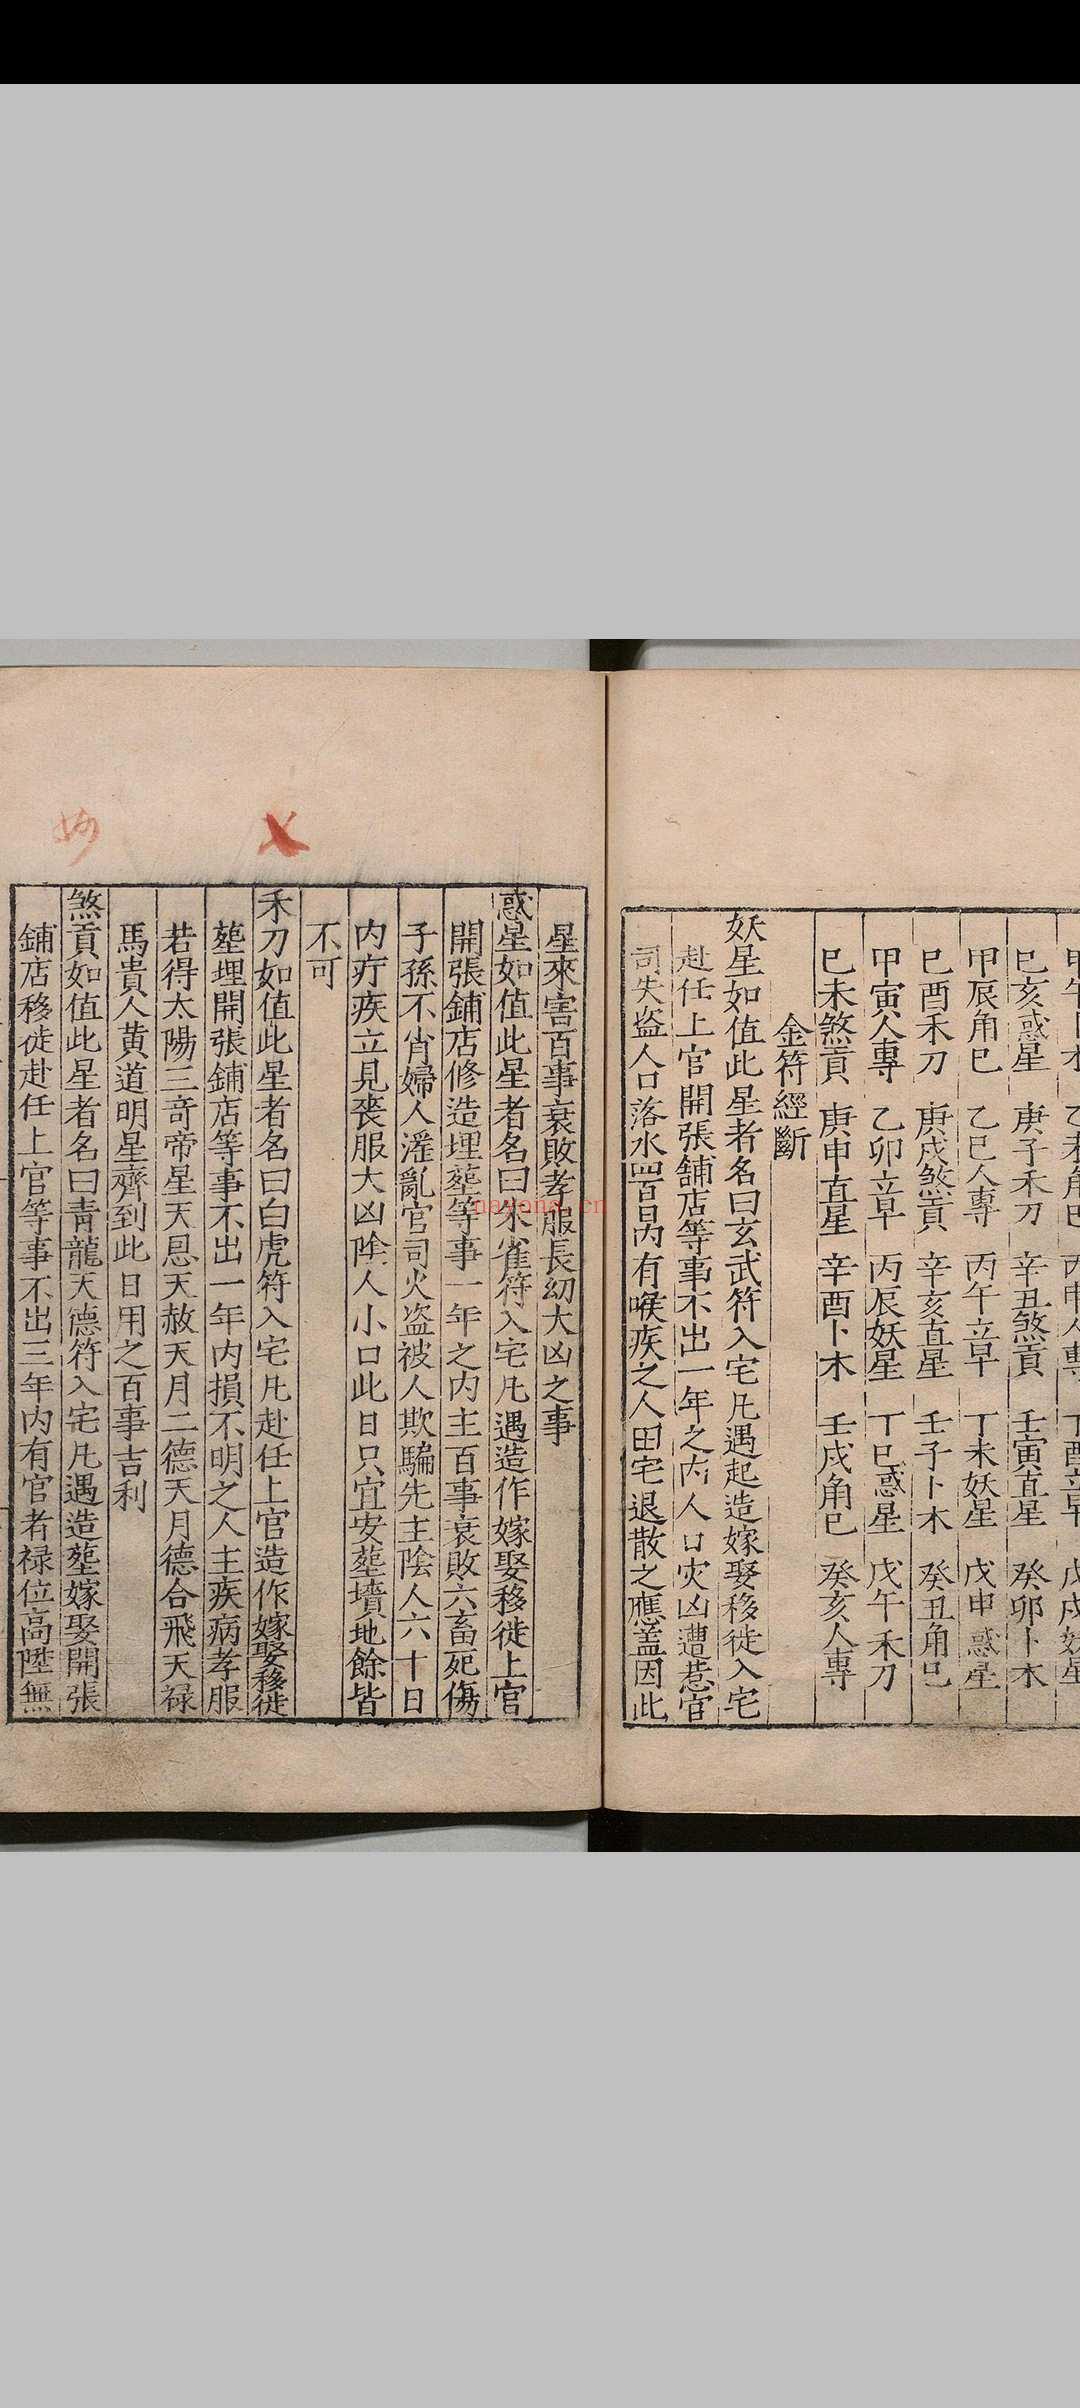 甲午卜木 乙未角巳 丙申人專 丁酉立早 戊戌妖星
巳亥惑星 庚子禾刀 辛丑煞貢 壬寅直星 癸卯卜木
甲辰角巳 乙巳人專 丙午立早 丁未妖星 戊申惑星
巳酉禾刀 庚戌煞貢 辛亥直星 壬子卜木 癸丑角巳
甲寅人專 乙卯立早 丙辰妖星 丁巳惑星 戊午禾刀
巳未煞貢 庚申直星 辛酉卜木 壬戌角巳 癸亥人專
金符經斷
妖星如值此星者名曰玄武符入宅凡遇起造嫁娶移徙入宅
赴任上官開張舖店等事不出一年之內人口灾凶遭惹官
司失盗人口落水四百日內有喉疾之人田宅退散之應蓋因此
星來害百事衰敗孝服長幼大凶之事
惑星如值此星者名曰朱雀符入宅凡遇造作嫁娶移徙上官
開張鋪店修造埋塟等事一年之内主百事衰敗六畜死傷
子孫不肖婦人滛亂官司火盗被人欺騙先主陰人六十日
内疔疾立見喪服大凶隂人小口此日只宜安塟墳地餘皆
不可
禾刀如值此星者名曰白虎符入宅凡赴任上官造作嫁娶移徙
塟埋開張鋪店等事不出一年内損不明之人主疾病孝服
若得太陽三竒帝星天恩天赦天月二德天月德合飛天禄
馬貴人黄道明星齊到此日用之百事吉利
煞貢如值此星者名曰青龍天德符入宅凡遇造塟嫁娶開張
鋪店移徙赴任上官等事不出三年内有官者禄位高陞無
妙
nayona.cn